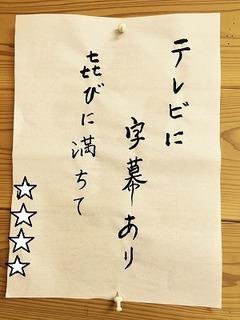 テレビに
字幕あり
㐂びに満ちて